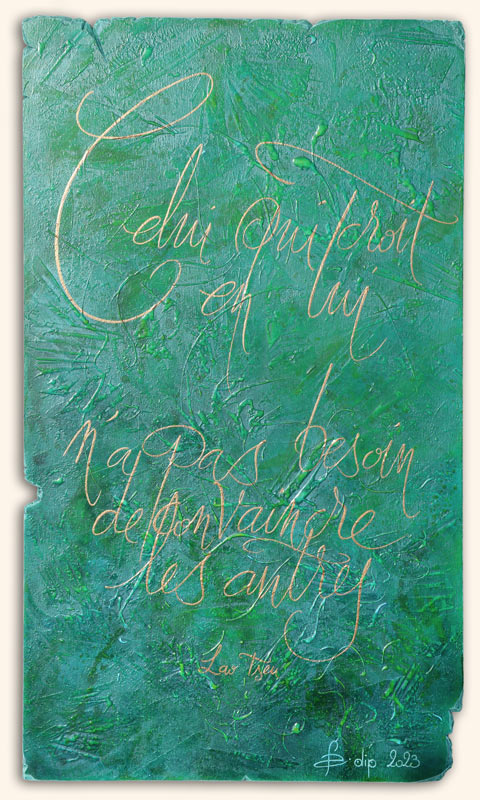 Celui qui croit
en lui
n'a pas besoin
de convaincre
les autres
Lao Tseu
dip 2023